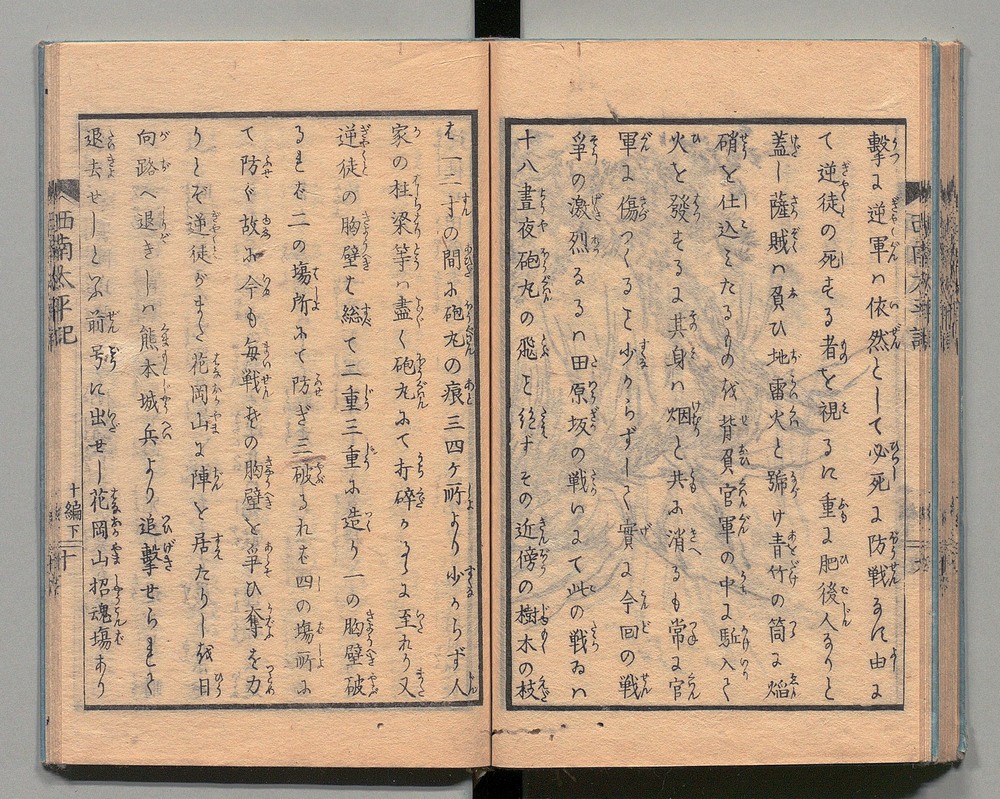 擊に逆軍ハ依然として必死に防戦なに由ま
て逆徒の死する者を視るに重に肥後人なりと
蓋し薩賊ハ負ひ地雷火と號け青竹の筒に焔
硝を仕込ミたるものを背負官軍の中に駈入て
火を發するに其身ハ烟と共に消るも常に官
軍に傷つくること少からずして實に今回の戦
爭の激烈なるハ田原坂の戦いにて此の戦ゐハ
十八晝夜砲丸の飛を絶ず その近傍の樹木の枝
を一二寸の間に砲丸の痕三四ケ所より少からず人
家の柱梁等ハ盡く砲丸にて打碎かるゝに至れり又
逆徒の胸壁も総て二重三重に造り一の胸壁破
るれを二の塲所にて防ぎ三破るれを四の塲所に
て防ぐ故に今も每戦その胸壁を爭ひ奪を力
りとぞ逆徒がまた花岡山に陣を居たりし彼目
向路へ退きしハ熊本城兵より追擊せられて
退去せしと云 前号に出せし花岡山招魂塲あり
西南太平記
十編下
十